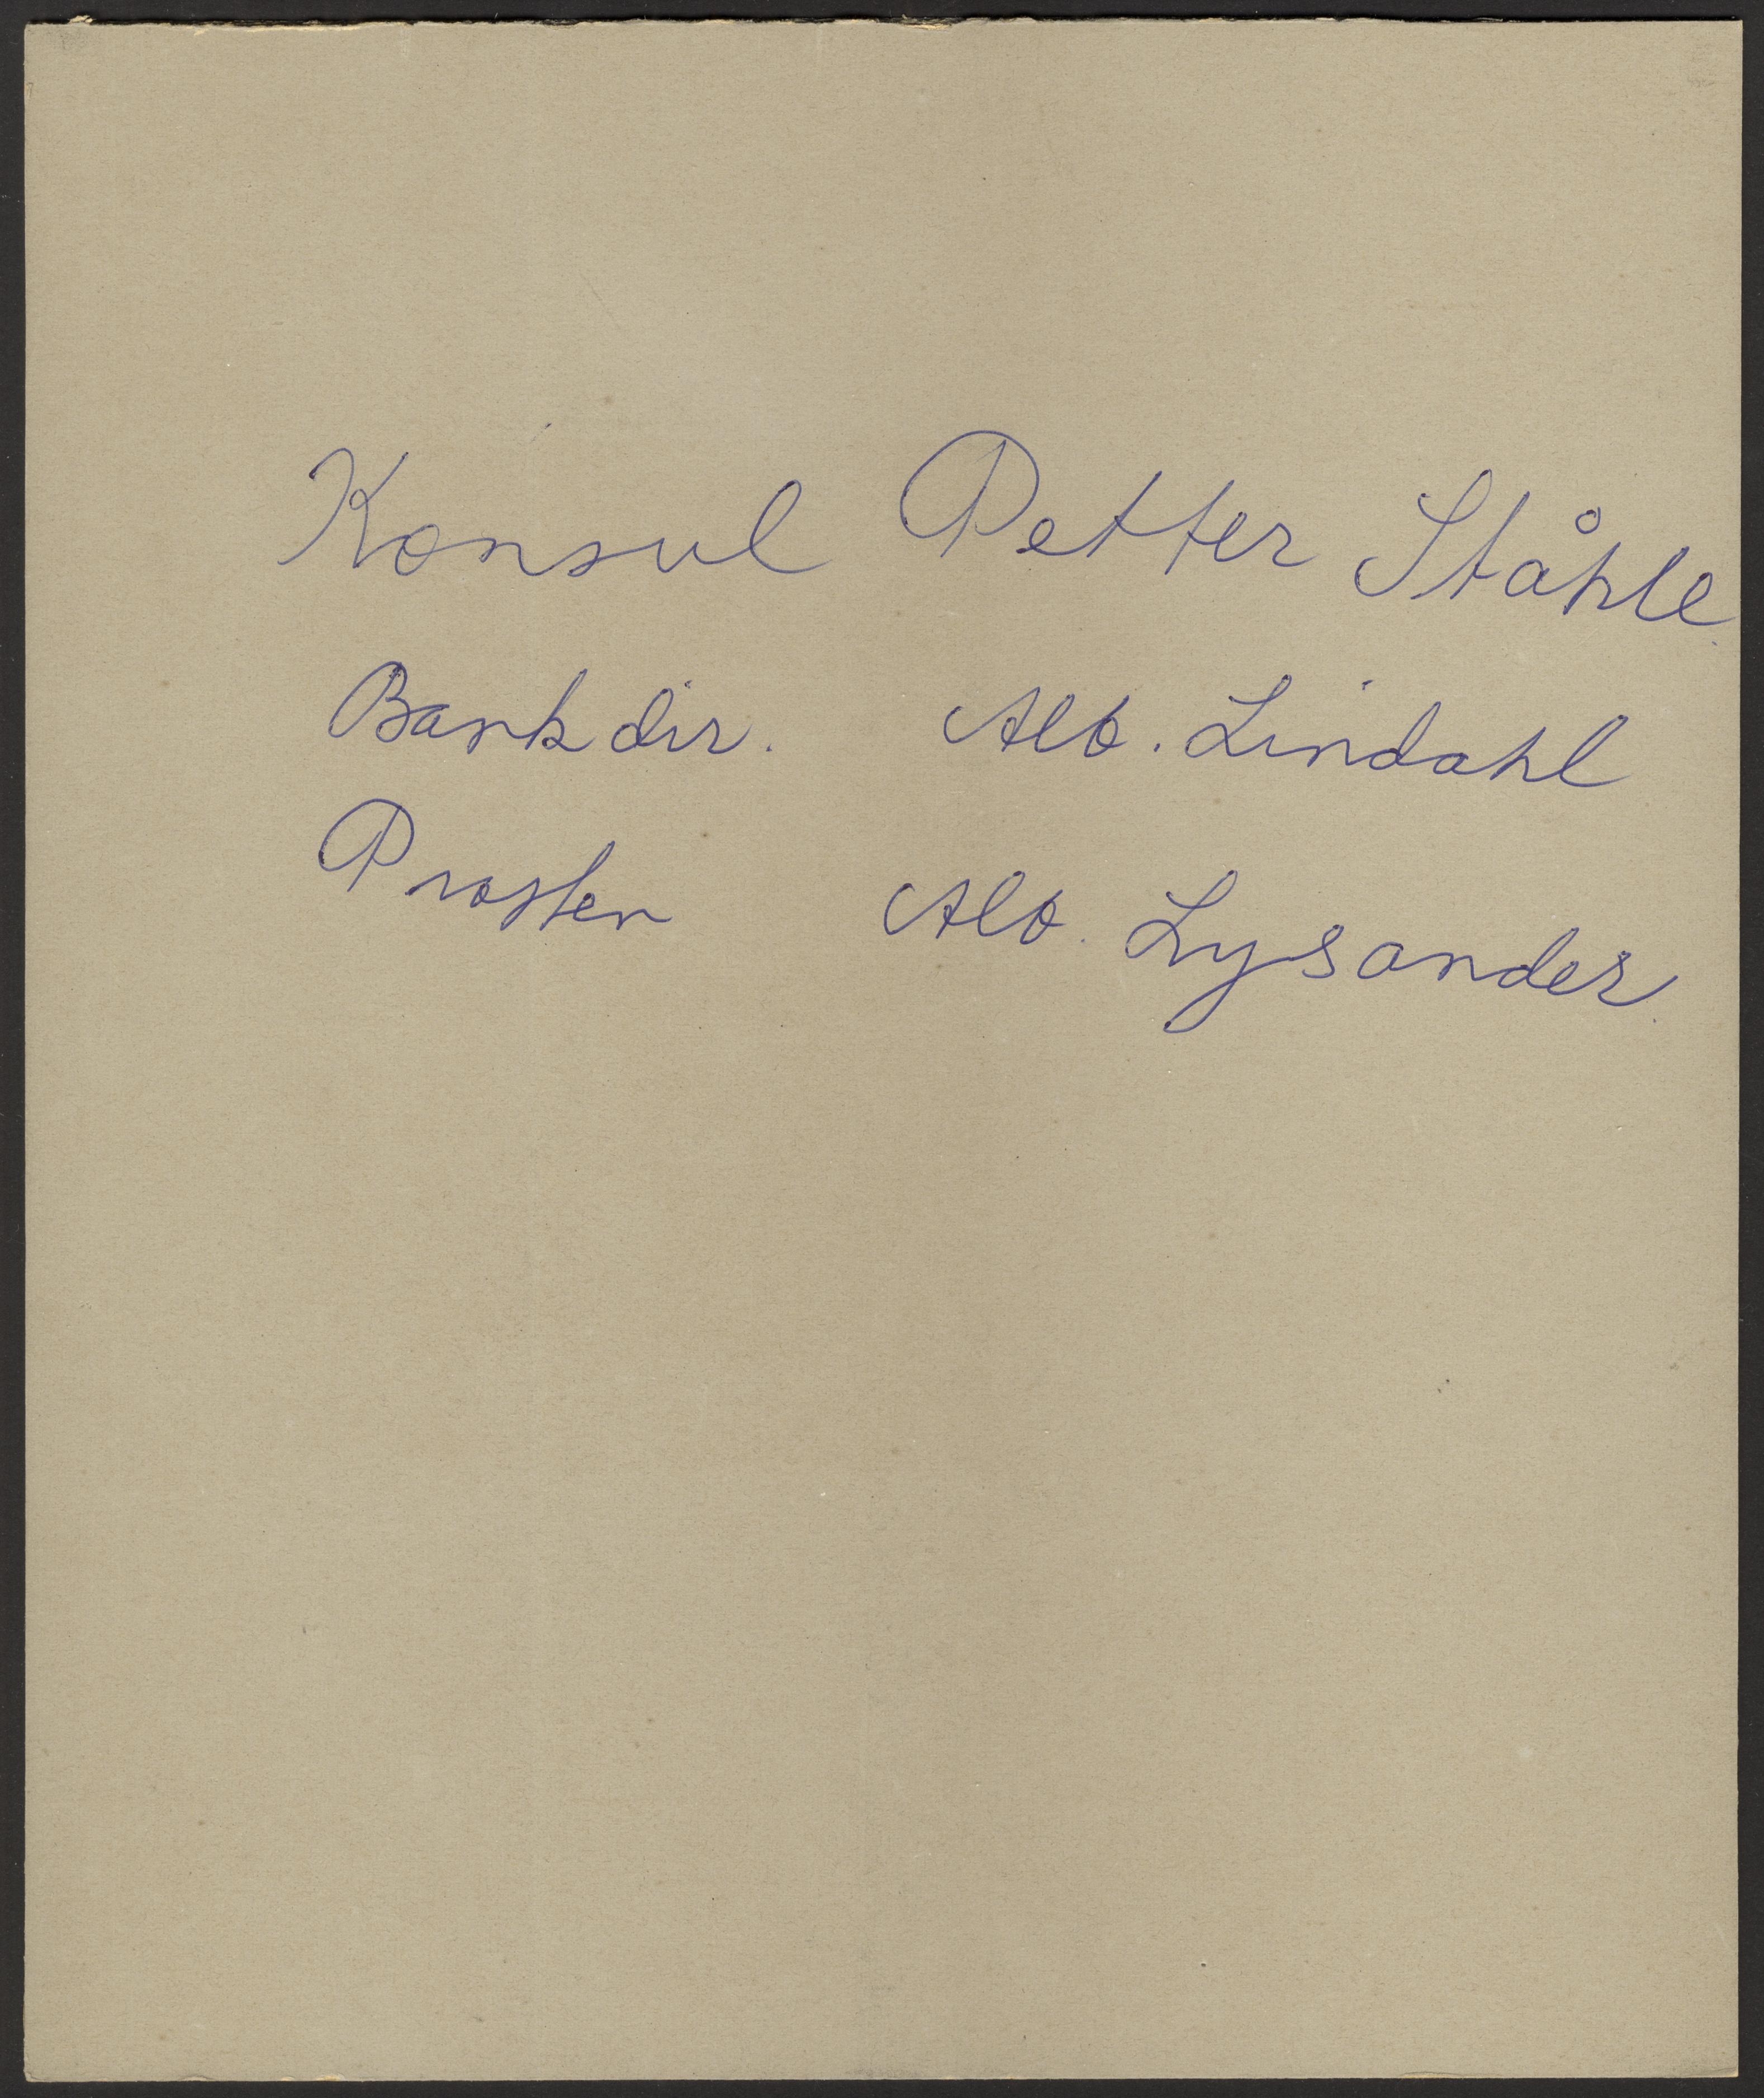 Konsul Petter Ståhle
Bankdir. Alb. Lindahl
Prosten Alb. Lysander